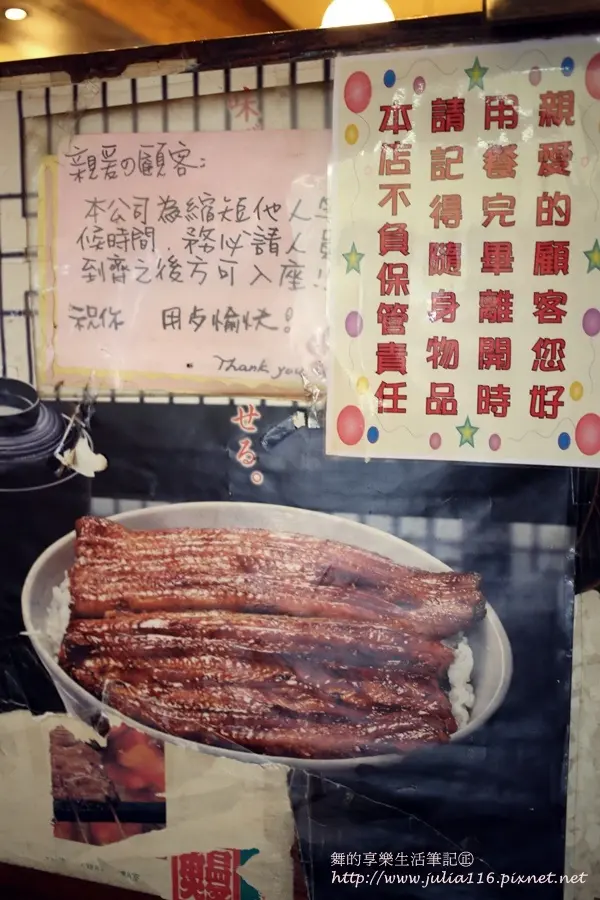 親愛の顧客：
本公司為縮短他人等
候時間，務必請人員
到齊之後方可入座!!
祝你 用歺愉快！
Thank you
親愛的顧客您好
用餐完畢離開時
請記得隨身物品
本店不負保管責任
味
せる。
鰻
舞的享樂生活筆記㊣
http://www.julia116.pixnet.net